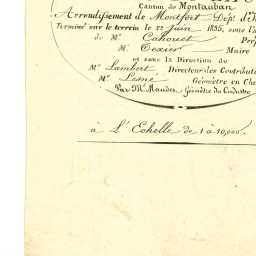 Canton de Montauban
Arrondissement de Montfort Dép.t d'
Terminé sur le terrein le 12 Juin 1835, sous l'
de M.r Cahouet Pré
M. Texier Maire
et sous la Direction de
M.r Lambert Directeur des Contribut
M.r Lesné Géomètre en Che
Par M.r Géomètre du Cadastre
à L'Echelle de 1 à 10,000.